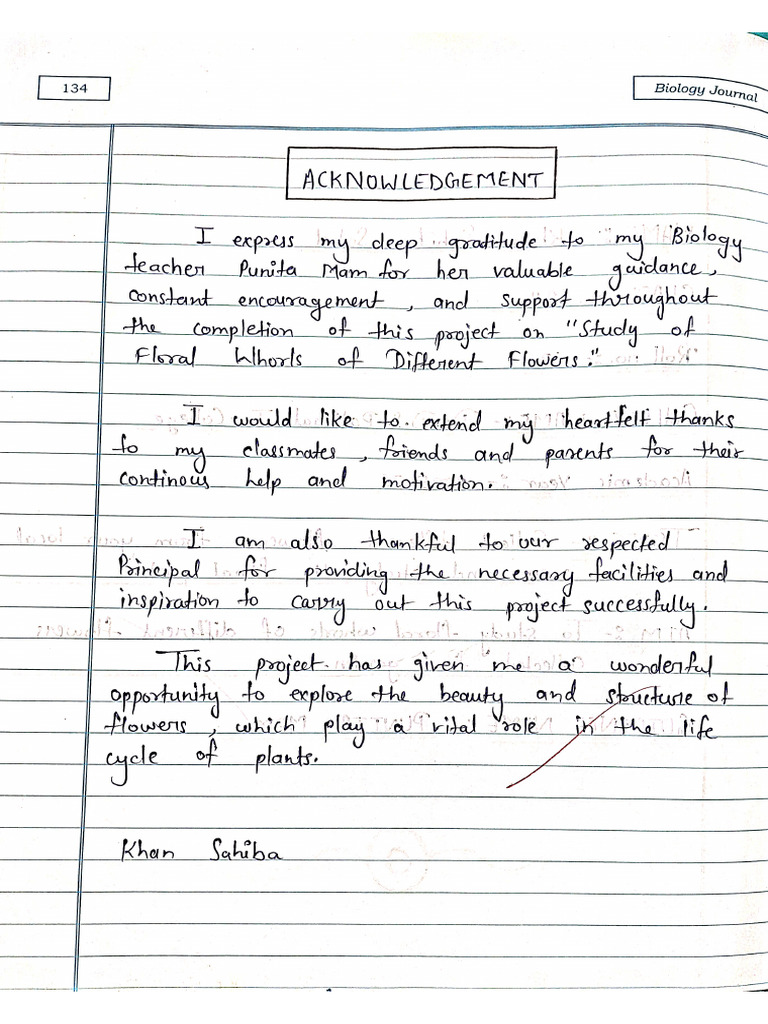 134
Biology Journal
ACKNOWLEDGEMENT
I express my deep gratitude to my Biology
teacher Punita Mam for her valuable guidance,
constant encouragement, and support throughout
the completion of this project on "Study of
Floral Whorls of Different Flowers."
I would like to extend my heartfelt thanks
to my classmates, friends and parents for their
continous help and motivation.
I am also thankful to our respected
Principal for providing the necessary facilities and
inspiration to carry out this project successfully.
This project has given me a wonderful
opportunity to explore the beauty and structure of
flowers, which play a vital role in the life
cycle of plants.
Khan Sahiba